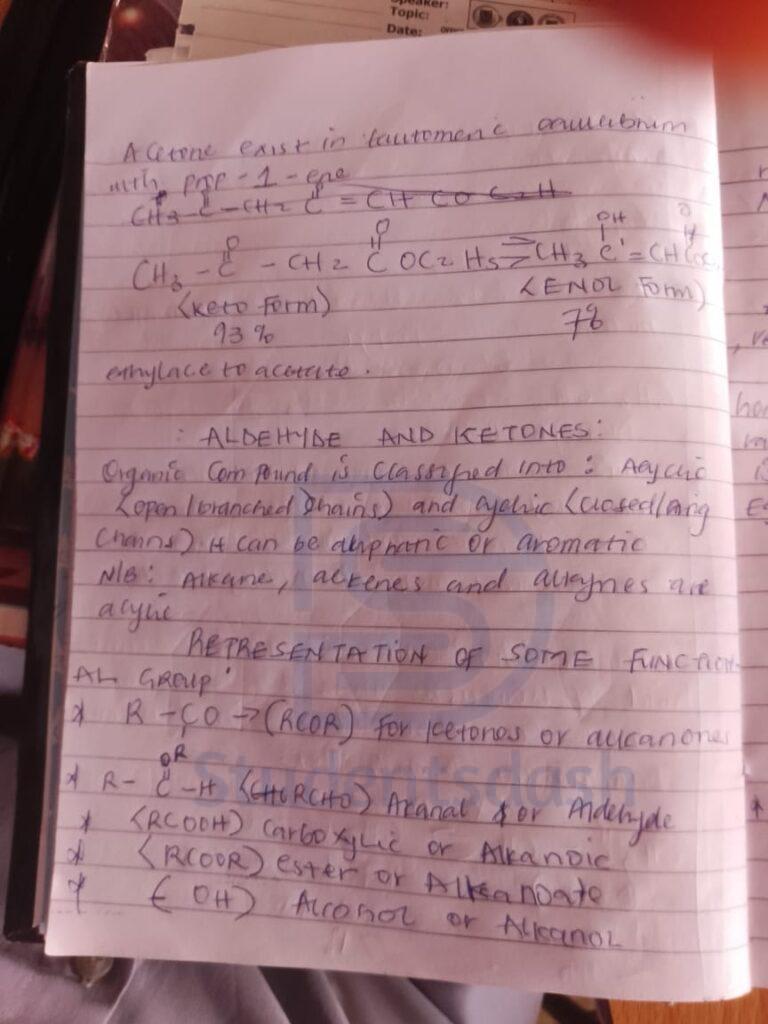 Speaker:
Topic:
Date:
Acetone exist in tautomeric
with prop-1-ene
CH3-C-CH2 C = CH CO C2H
O O OH O
CH3 - C - CH2 C OC2H5 ⇌ CH3 C = CH C
<keto form) <ENOL Form)
93% 7%
ethylaceto acetate.
: ALDEHYDE AND KETONES:
Organic Compound is Classified into : Acyclic
<open/branched Chains) and cyclic <closed/ring
Chains) It can be aliphatic or aromatic
N/B: Alkane, alkenes and alkynes are
acylic
REPRESENTATION OF SOME FUNCTION-
AL GROUP:
* R - CO → (RCOR) for ketones or alkanones
* R- C -H (RCHO) Akanal or Aldehyde
* <RCOOH) Carboxylic or Alkanoic
* <RCOOR) ester or Alkanoate
* (OH) Alcohol or Alkanol
Studentsdash